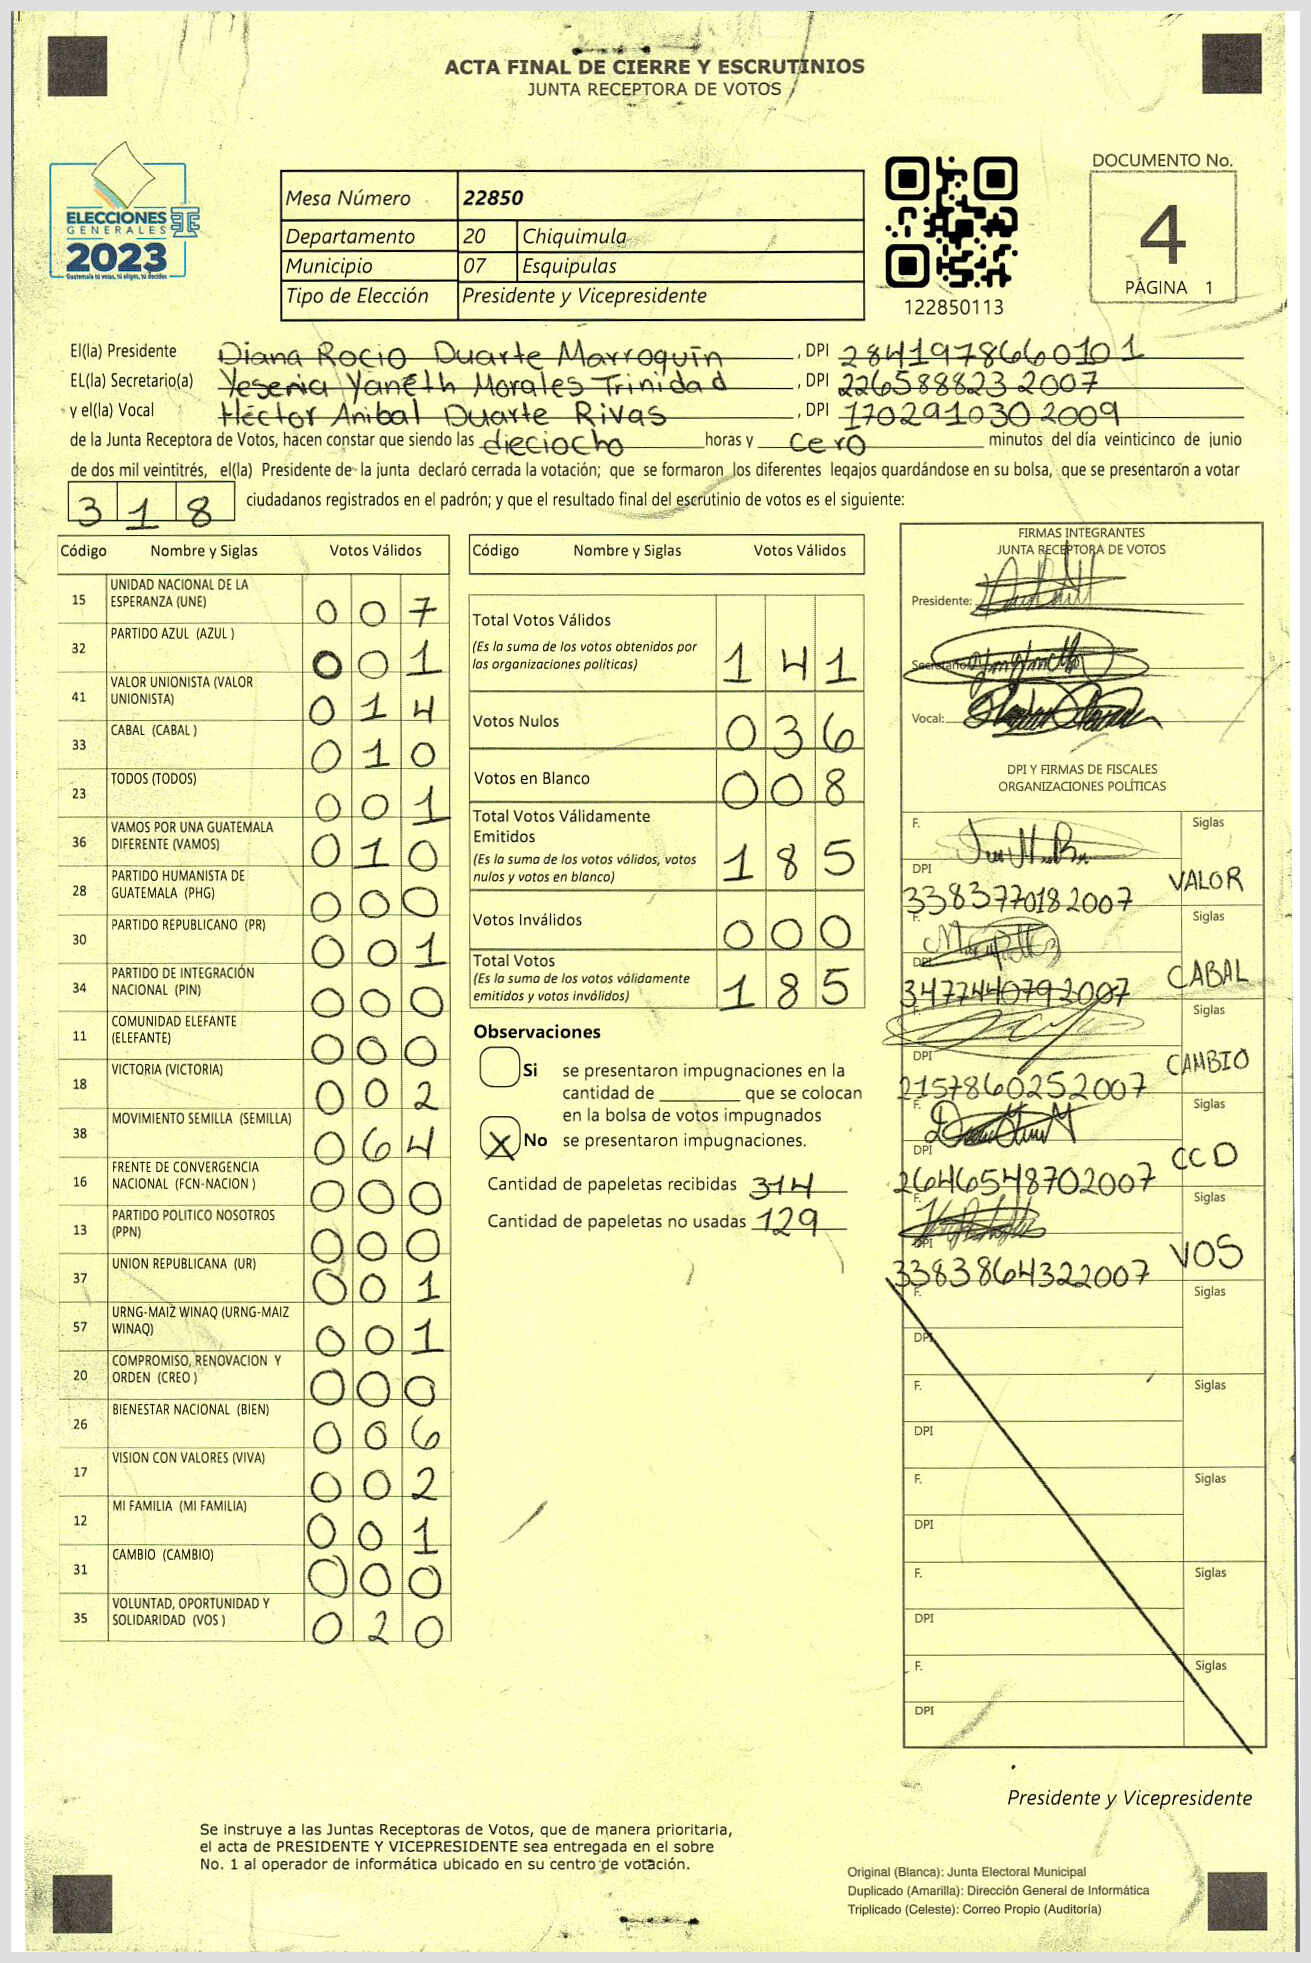 ACTA FINAL DE CIERRE Y ESCRUTINIOS
JUNTA RECEPTORA DE VOTOS
ELECCIONES
GENERALES
2023
Guatemala tú votas, tú eliges, tú decides
Mesa Número 22850
Departamento 20 Chiquimula
Municipio 07 Esquipulas
Tipo de Elección Presidente y Vicepresidente
122850113
DOCUMENTO No.
4
PÁGINA 1
El(la) Presidente Diana Rocio Duarte Marroquin, DPI 2841978660101
EL(la) Secretario(a) Yesenia Yaneth Morales Trinidad, DPI 226588823 2007
y el(la) Vocal Héctor Anibal Duarte Rivas, DPI 170291030 2009
de la Junta Receptora de Votos, hacen constar que siendo las dieciocho horas y cero minutos del día veinticinco de junio
de dos mil veintitrés, el(la) Presidente de la junta declaró cerrada la votación; que se formaron los diferentes legajos quardándose en su bolsa, que se presentaron a votar
318 ciudadanos registrados en el padrón; y que el resultado final del escrutinio de votos es el siguiente:
Código Nombre y Siglas Votos Válidos
15 UNIDAD NACIONAL DE LA ESPERANZA (UNE) 007
32 PARTIDO AZUL (AZUL ) 001
41 VALOR UNIONISTA (VALOR UNIONISTA) 014
33 CABAL (CABAL ) 010
23 TODOS (TODOS) 001
36 VAMOS POR UNA GUATEMALA DIFERENTE (VAMOS) 010
28 PARTIDO HUMANISTA DE GUATEMALA (PHG) 000
30 PARTIDO REPUBLICANO (PR) 001
34 PARTIDO DE INTEGRACIÓN NACIONAL (PIN) 000
11 COMUNIDAD ELEFANTE (ELEFANTE) 000
18 VICTORIA (VICTORIA) 002
38 MOVIMIENTO SEMILLA (SEMILLA) 064
16 FRENTE DE CONVERGENCIA NACIONAL (FCN-NACION ) 000
13 PARTIDO POLITICO NOSOTROS (PPN) 000
37 UNION REPUBLICANA (UR) 001
57 URNG-MAIZ WINAQ (URNG-MAIZ WINAQ) 001
20 COMPROMISO, RENOVACION Y ORDEN (CREO ) 000
26 BIENESTAR NACIONAL (BIEN) 006
17 VISION CON VALORES (VIVA) 002
12 MI FAMILIA (MI FAMILIA) 001
31 CAMBIO (CAMBIO) 000
35 VOLUNTAD, OPORTUNIDAD Y SOLIDARIDAD (VOS ) 020
Código Nombre y Siglas Votos Válidos
Total Votos Válidos
(Es la suma de los votos obtenidos por
las organizaciones políticas) 141
Votos Nulos 036
Votos en Blanco 008
Total Votos Válidamente
Emitidos
(Es la suma de los votos válidos, votos
nulos y votos en blanco) 185
Votos Inválidos 000
Total Votos
(Es la suma de los votos válidamente
emitidos y votos inválidos) 185
Observaciones
Si se presentaron impugnaciones en la
cantidad de ________ que se colocan
en la bolsa de votos impugnados
X No se presentaron impugnaciones.
Cantidad de papeletas recibidas 314
Cantidad de papeletas no usadas 129
FIRMAS INTEGRANTES
JUNTA RECEPTORA DE VOTOS
Presidente:
Secretario
Vocal:
DPI Y FIRMAS DE FISCALES
ORGANIZACIONES POLÍTICAS
F. Siglas
DPI 3383770182007 VALOR
F. Siglas
DPI 3477440792007 CABAL
F. Siglas
DPI 2157860252007 CAMBIO
F. Siglas
DPI 2646548702007 CCD
F. Siglas
DPI 3383864322007 VOS
F. Siglas
DPI
F. Siglas
DPI
F. Siglas
DPI
F. Siglas
DPI
F. Siglas
DPI
Presidente y Vicepresidente
Se instruye a las Juntas Receptoras de Votos, que de manera prioritaria,
el acta de PRESIDENTE Y VICEPRESIDENTE sea entregada en el sobre
No. 1 al operador de informática ubicado en su centro de votación.
Original (Blanca): Junta Electoral Municipal
Duplicado (Amarilla): Dirección General de Informática
Triplicado (Celeste): Correo Propio (Auditoría)